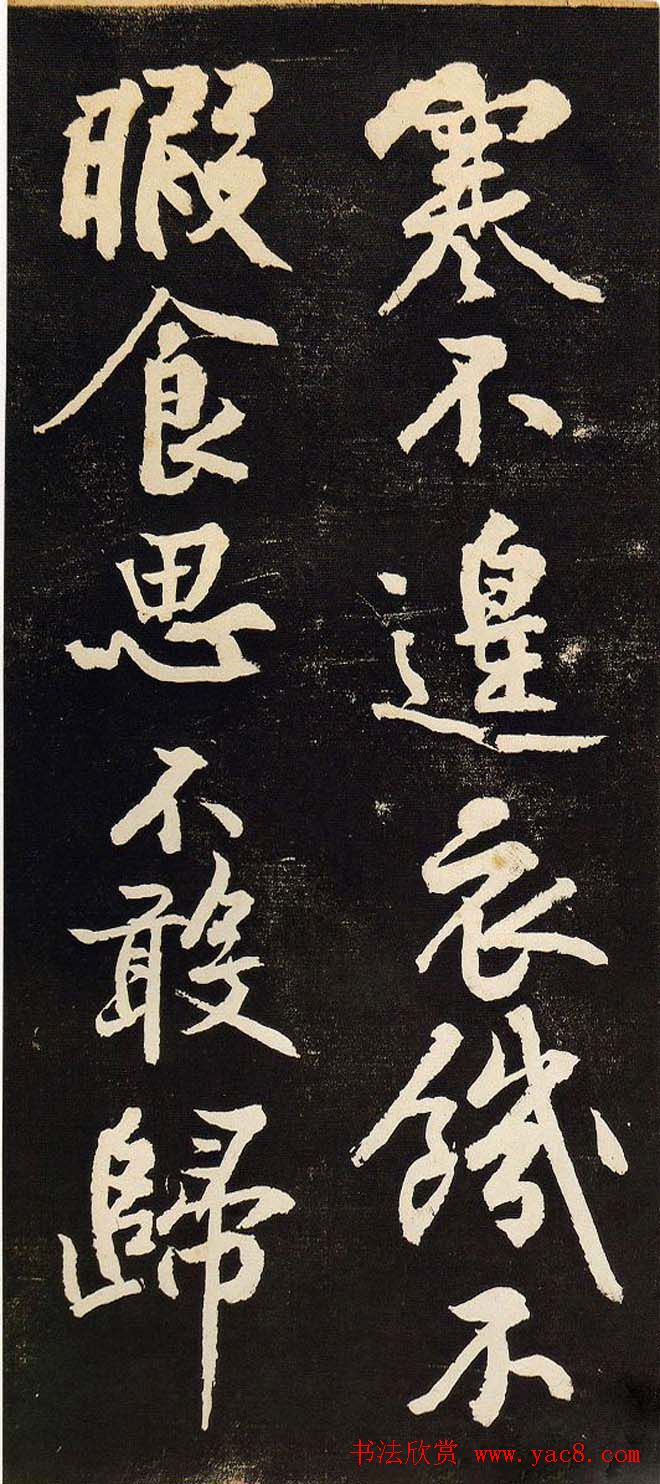 寒不遑衣饑不
暇食思不敢歸
书法欣赏 www.yac8.com